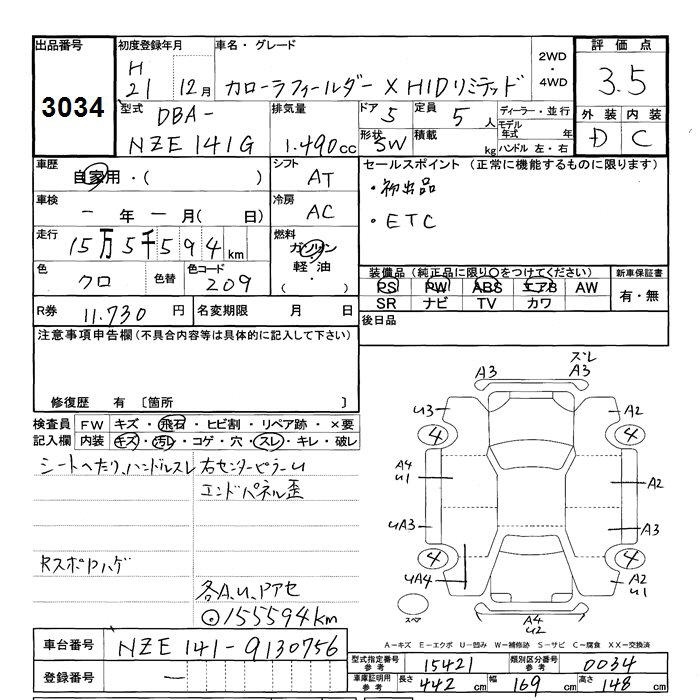 出品番号 初度登録年月 車名・グレード 評価点
3034 H 21 12月 カローラフィールダー X HIDリミテッド 2WD ・ 4WD 3.5
型式 DBA- NZE141G 排気量 1.490cc ドア 5 定員 5人 ディーラー・並行
形状 SW 積載 kg モデル年式 年 ハンドル 左・右
外装 内装
D C
車歴 自家用・( ) シフト AT
車検 ー年ー月( 日) 冷房 AC
走行 15万5千594km 燃料 ガソリン 軽油 ( ・ )
色 クロ 色替 色コード 209
R券 11.730円 名変期限 月 日
セールスポイント (正常に機能するものに限ります)
・初出品
・ETC
装備品 (純正品に限り○をつけてください) 新車保証書
PS PW ABS エアB AW 有・無
SR ナビ TV カワ
後日品
注意事項申告欄(不具合内容等は具体的に記入して下さい)
修復歴 有 〔箇所 〕
検査員 FW キズ・飛石・ヒビ割・リペア跡・×要
記入欄 内装 キズ・汚レ・コゲ・穴・スレ・キレ・破レ
シートへたり、ハンドルスレ 右センターピラーU
エンドパネル歪
RスポPハゲ
各A.U.Pアセ
155594km
ズレ
A3 A3
U3 A2
4 4
A4 U1 A2
UA3 A3
4 4
UA4 A2 U1
スペア A4 U2
A-キズ E-エクボ U-凹み W-補修跡 S-サビ C-腐食 XX-交換済
車台番号 NZE141-9130756
登録番号 ー
型式指定番号 参考 15421 類別区分番号 参考 0034
車庫証明用 参考 長さ 442cm 幅 169cm 高さ 148cm